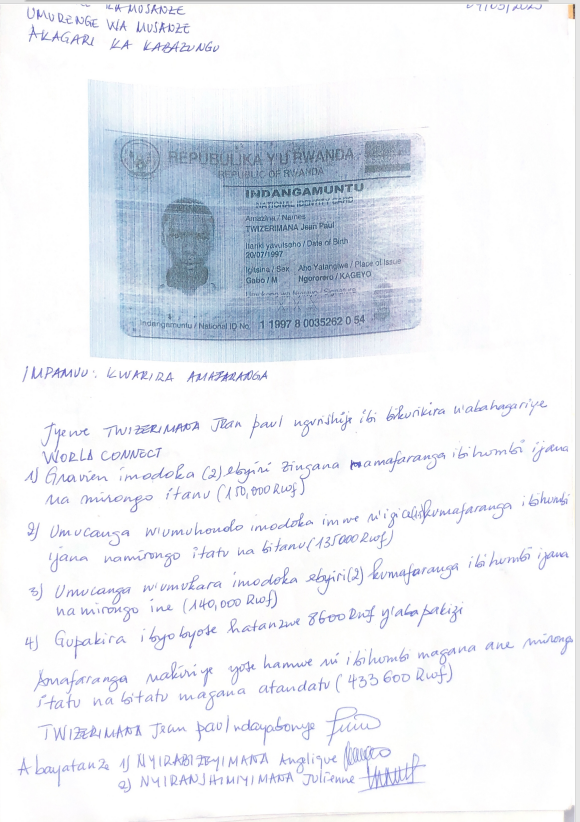 KA MUSANZE
UMURENGE WA MUSANZE
AKAGARI KA KABAZUNGU
REPUBULIKA Y'U RWANDA
REPUBLIC OF RWANDA
INDANGAMUNTU
NATIONAL IDENTITY CARD
Amazina / Names
TWIZERIMANA Jean Paul
Itariki yavutseho / Date of Birth
20/07/1997
Igitsina / Sex Aho Yatangiwe / Place of Issue
Gabo / M Ngororero / KAGEYO
Indangamuntu / National ID No. 1 1997 8 0035262 0 54
IMPAMVU: KWAKIRA AMAFARANGA
Jyewe TWIZERIMANA Jean paul ngurishije ibi bikurikira n'abahagariye
WORLD CONNECT
1) Gravien imodoka (2) ebyiri zingana mamafaranga ibihumbi ijana
na mirongo itanu (150,000 Rwf)
2) Umucanga w'umuhondo imodoka imwe n'igice kumafaranga ibihumbi
ijana namirongo itatu na bitanu (135000 Rwf)
3) Umucanga w'umukara imodoka ebyiri (2) kumafaranga ibihumbi ijana
na mirongo ine (140,000 Rwf)
4) Gupakira ibyo byose hatanzwe 8600 Rwf y'abapakizi
Amafaranga nakiriye yose hamwe ni ibihumbi magana ane mirongo
itatu na bitatu magana atandatu (433 600 Rwf)
TWIZERIMANA Jean paul ndayabonye
Abayatanze 1) NYIRABIZEYIMANA Angelique
2) NYIRANSHIMIYIMANA Julienne